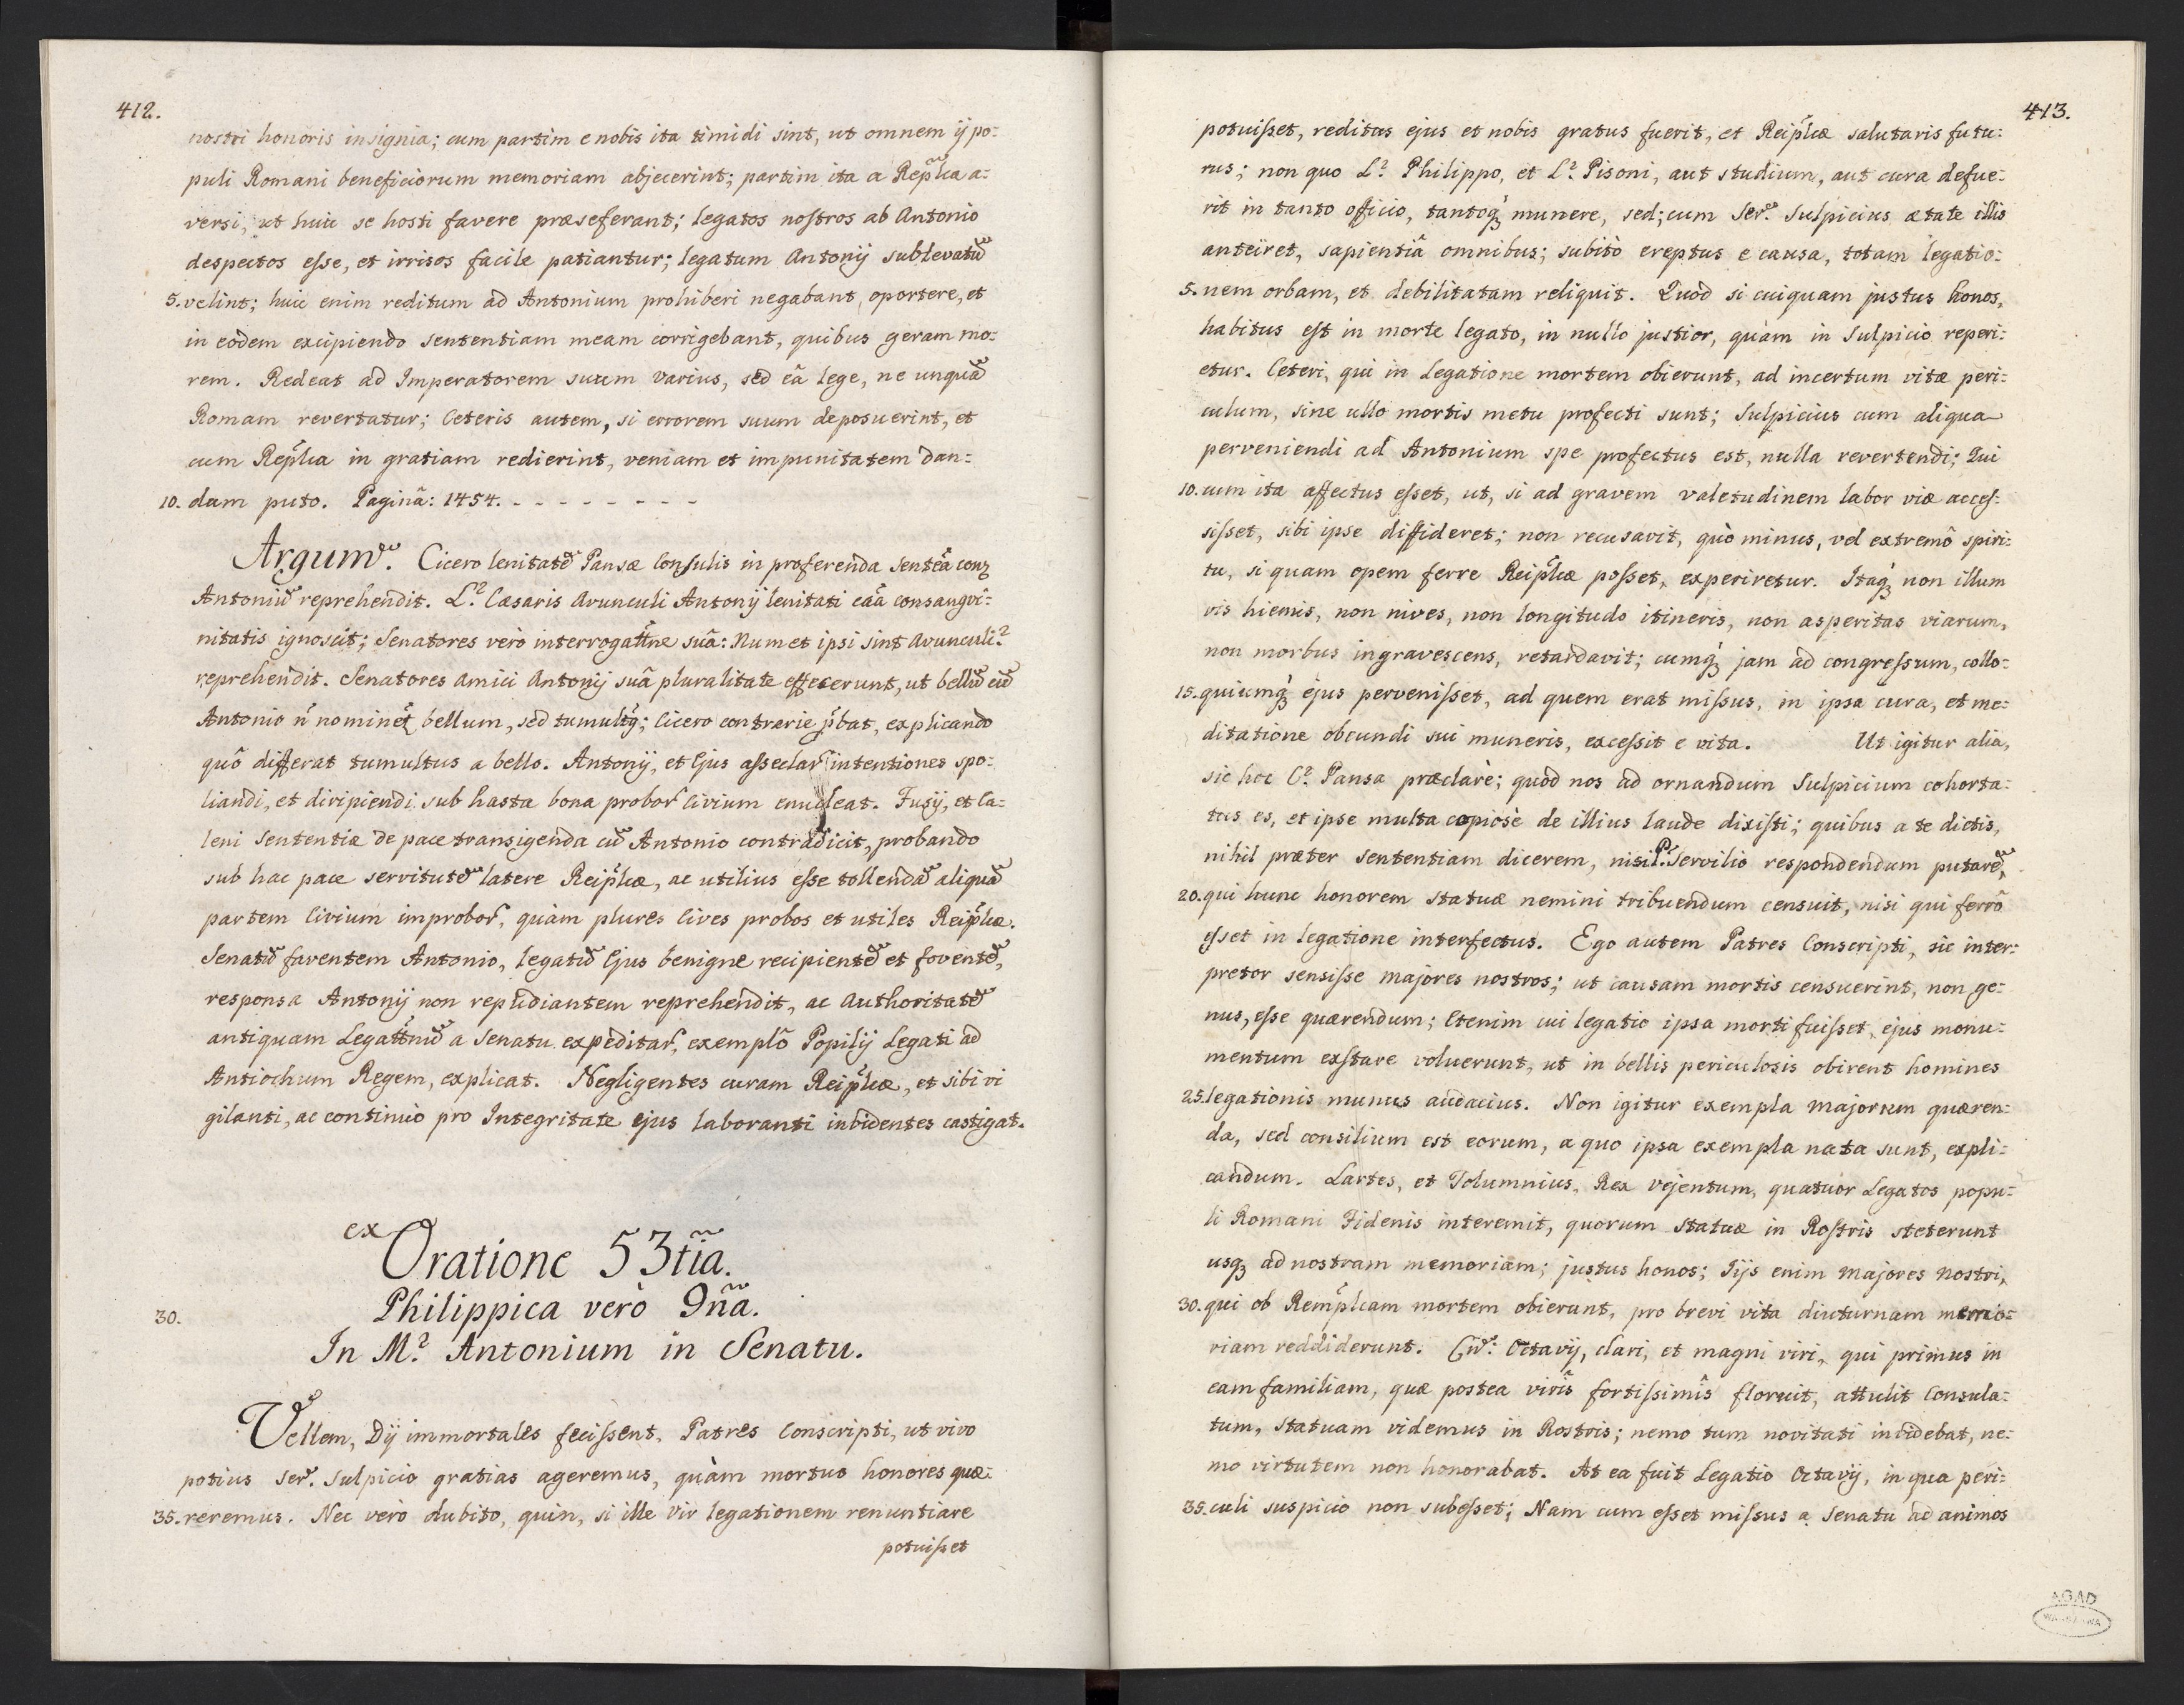 412.
nostri honoris insignia; cum partim e nobis ita timidi sint, ut omnem ij po:
puli Romani beneficiorum memoriam abjecerint; partim ita a Repl̃ca a:
versi, ut huic se hosti favere præseferant; legatos nostros ab Antonio
despectos esse, et irrisos facile patiantur; legatum Antonij sublevatũ
5. velint; huic enim reditum ad Antonium prohiberi negabant oportere, et
in eodem excipiendo sententiam meam corrigebant, quibus geram mo:
rem. Redeat ad Imperatorem suum Varius, sed eâ lege, ne unquã
Romam revertatur; Ceteris autem, si errorem suum deposuerint, et
cum Repl̃ca in gratiam redierint, veniam et impunitatem dan:
10. dam puto. Paginâ: 1454. - - - - - - - -
Argum̃. Cicero lenitatẽ Pansæ Consulis in proferenda sentẽa conꝫ
Antoniũ reprehendit. L.? Cæsaris Avunculi Antonij lenitati cãa consangvi:
nitatis ignoscit; Senatores verò interrogatt̃ne suâ: Num et ipsi sint Avunculi?
reprehendit. Senatores Amici Antonij suâ pluralitate effecerunt, ut bellũ cũ
Antonio ñ nominet̃ bellum, sed tumultꝰ; Cicero contrarie p̃bat, explicando
quô differat tumultus a bello. Antonij, et Ejus asseclar̃ intentiones spo:
liandi, et diripiendi sub hasta bona probor̃ Civium enucleat. Fusij, et Ca:
leni Sententiæ de pace transigenda cũ Antonio contradicit, probando
sub hac pace servitutẽ latere Reipl̃cæ, ac utilius esse tollendã aliquã
partem Civium improbor̃, quàm plures Cives probos et utiles Reipl̃cæ.
Senatũ faventem Antonio, legatũ Ejus benigne recipientẽ et foventẽ,
responsa Antonij non repudiantem reprehendit, ac Authoritatẽ
antiquam Legatt̃nũ a Senatu expeditar̃, exemplô Popilij Legati ad
Antiochum Regem, explicat. Negligentes curam Reipl̃cæ, et sibi vi
gilanti, ac continuò pro Integritate ejus laboranti invidentes castigat.
ex Oratione 53tĩa.
30. Philippica verò 9ñа.
In M.? Antonium in Senatu.
Vellem, Dij immortales fecissent, Patres Conscripti, ut vivo
potius Ser̃. Sulpicio gratias ageremus, quàm mortuo honores quæ:
35. reremus. Nec verò dubito, quin, si ille Vir legationem renuntiare
potuisset
413.
potuisset, reditus ejus et nobis gratus fuerit, et Reipl̃cæ salutaris futu:
rus; non quo L.? Philippo, et L.? Pisoni, aut studium, aut cura defue:
rit in tanto officio, tantoqꝫ munere, sed; cum Ser̃. Sulpicius ætate illis
anteiret, sapientiâ omnibus; subitò ereptus e causa, totam legatio:
5. nem orbam, et debilitatam reliquit. Quòd si cuiquam justus honos,
habitus est in morte legato, in nullo justior, quàm in Sulpicio reperi:
etur. Ceteri, qui in Legatione mortem obierunt, ad incertum vitæ peri:
culum, sine ullo mortis metu profecti sunt; Sulpicius cum aliqua
perveniendi ad Antonium spe profectus est, nulla revertendi; Qui
10. cum ita affectus esset, ut, si ad gravem valetudinem labor viæ acces:
sisset, sibi ipse diffideret; non recusavit, quò minus, vel extremô spiri:
tu, si quam opem ferre Reipl̃cæ posset, experiretur. Itaqꝫ non illum
vis hiemis, non nives, non longitudo itineris, non asperitas viarum,
non morbus ingravescens, retardavit; cumqꝫ jam ad congressum, collo:
15. quiumqꝫ ejus pervenisset, ad quem erat missus, in ipsa cura, et me:
ditatione obeundi sui muneris, excessit e vita. Ut igitur alia,
sic hoc C.? Pansa præclarè; quòd nos ad ornandum Sulpicium cohorta:
tus es, et ipse multa copiosè de illius laude dixisti; quibus a te dictis,
nihil præter sententiam dicerem, nisi P. Servilio respondendum putarẽ,
20. qui hunc honorem statuæ nemini tribuendum censuit, nisi qui ferrô
esset in legatione interfectus. Ego autem Patres Conscripti, sic inter:
pretor sensisse majores nostros; ut causam mortis censuerint, non ge:
nus, esse quærendum; Etenim cui legatio ipsa morti fuisset, ejus monu:
mentum exstare voluerunt, ut in bellis periculosis obirent homines
25. legationis munus audacius. Non igitur exempla majorum quæren:
da, sed consilium est eorum, a quo ipsa exempla nata sunt, expli:
candum. Lartes, et Tolumnius, Rex vejentum, quatuor Legatos popu:
li Romani Fidenis interemit, quorum statuæ in Rostris steterunt
usqꝫ ad nostram memoriam; justus honos; Iijs enim majores nostri,
30. qui ob Rempl̃cam mortem obierunt, pro brevi vita diuturnam memo:
riam reddiderunt. Cñ: Octavij, clari, et magni viri, qui primus in
eam familiam, quæ postea viris̃ fortissimis̃ floruit, attulit Consula:
tum, statuam videmus in Rostris; nemo tum novitati invidebat, ne:
mo virtutem non honorabat. At ea fuit Legatio Octavij, in qua peri:
35. culi suspicio non subesset; Nam cum esset missus a Senatu ad animos
AGAD
WARSZAWA